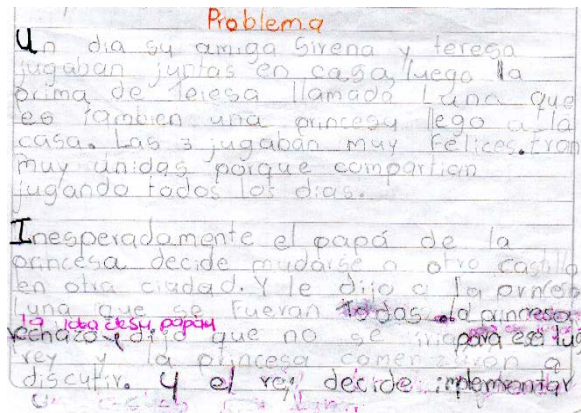 Problema
Un dia su amiga Sirena y teresa
jugaban juntas en casa, luego la
prima de teresa llamada Luna que
es tambien una princesa llego a la
casa. Las 3 jugaban muy Felices. Eran
muy unidas porque compartian
jugando todos los dias.
Inesperadamente el papá de la
princesa decide mudarse a otro castillo
en otra ciudad. Y le dijo a la prima
Luna que se fueran todas. la princesa
la idea de su papá y
rechazo y dijo que no se iria para ese lug
rey y la princesa comenzaron a
discutir. y el rey decide implementar